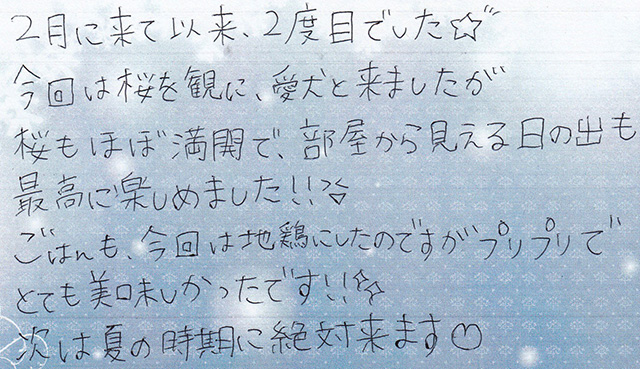 2月に来て以来、2度目でした☆〃
今回は桜を観に、愛犬と来ましたが
桜もほぼ満開で、部屋から見える日の出も
最高に楽しめました!!
ごはんも、今回は地鶏にしたのですがプリプリで
とても美味しかったです!!☆
次は夏の時期に絶対来ます♡